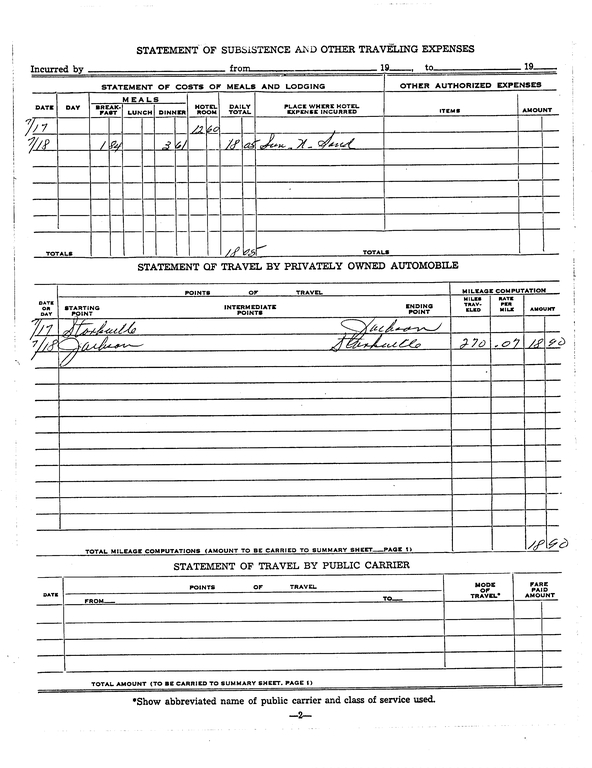 STATEMENT OF SUBSISTENCE AND OTHER TRAVELING EXPENSES
Incurred by from 19 , to 19
STATEMENT OF COSTS OF MEALS AND LODGING OTHER AUTHORIZED EXPENSES
DATE DAY MEALS BREAK-FAST LUNCH DINNER HOTEL ROOM DAILY TOTAL PLACE WHERE HOTEL EXPENSE INCURRED ITEMS AMOUNT
7/17 12 60
7/18 1 84 3 61 18 05 Sun - N - Sand
TOTALS 18 05 TOTALS
STATEMENT OF TRAVEL BY PRIVATELY OWNED AUTOMOBILE
POINTS OF TRAVEL MILEAGE COMPUTATION
DATE OR DAY STARTING POINT INTERMEDIATE POINTS ENDING POINT MILES TRAV-ELED RATE PER MILE AMOUNT
7/17 Starkville Jackson
7/18 Jackson Starkville 270 .07 18 90
TOTAL MILEAGE COMPUTATIONS (AMOUNT TO BE CARRIED TO SUMMARY SHEET PAGE 1) 18 90
STATEMENT OF TRAVEL BY PUBLIC CARRIER
DATE POINTS OF TRAVEL MODE OF TRAVEL* FARE PAID AMOUNT
FROM TO
TOTAL AMOUNT (TO BE CARRIED TO SUMMARY SHEET, PAGE 1)
*Show abbreviated name of public carrier and class of service used.
—2—